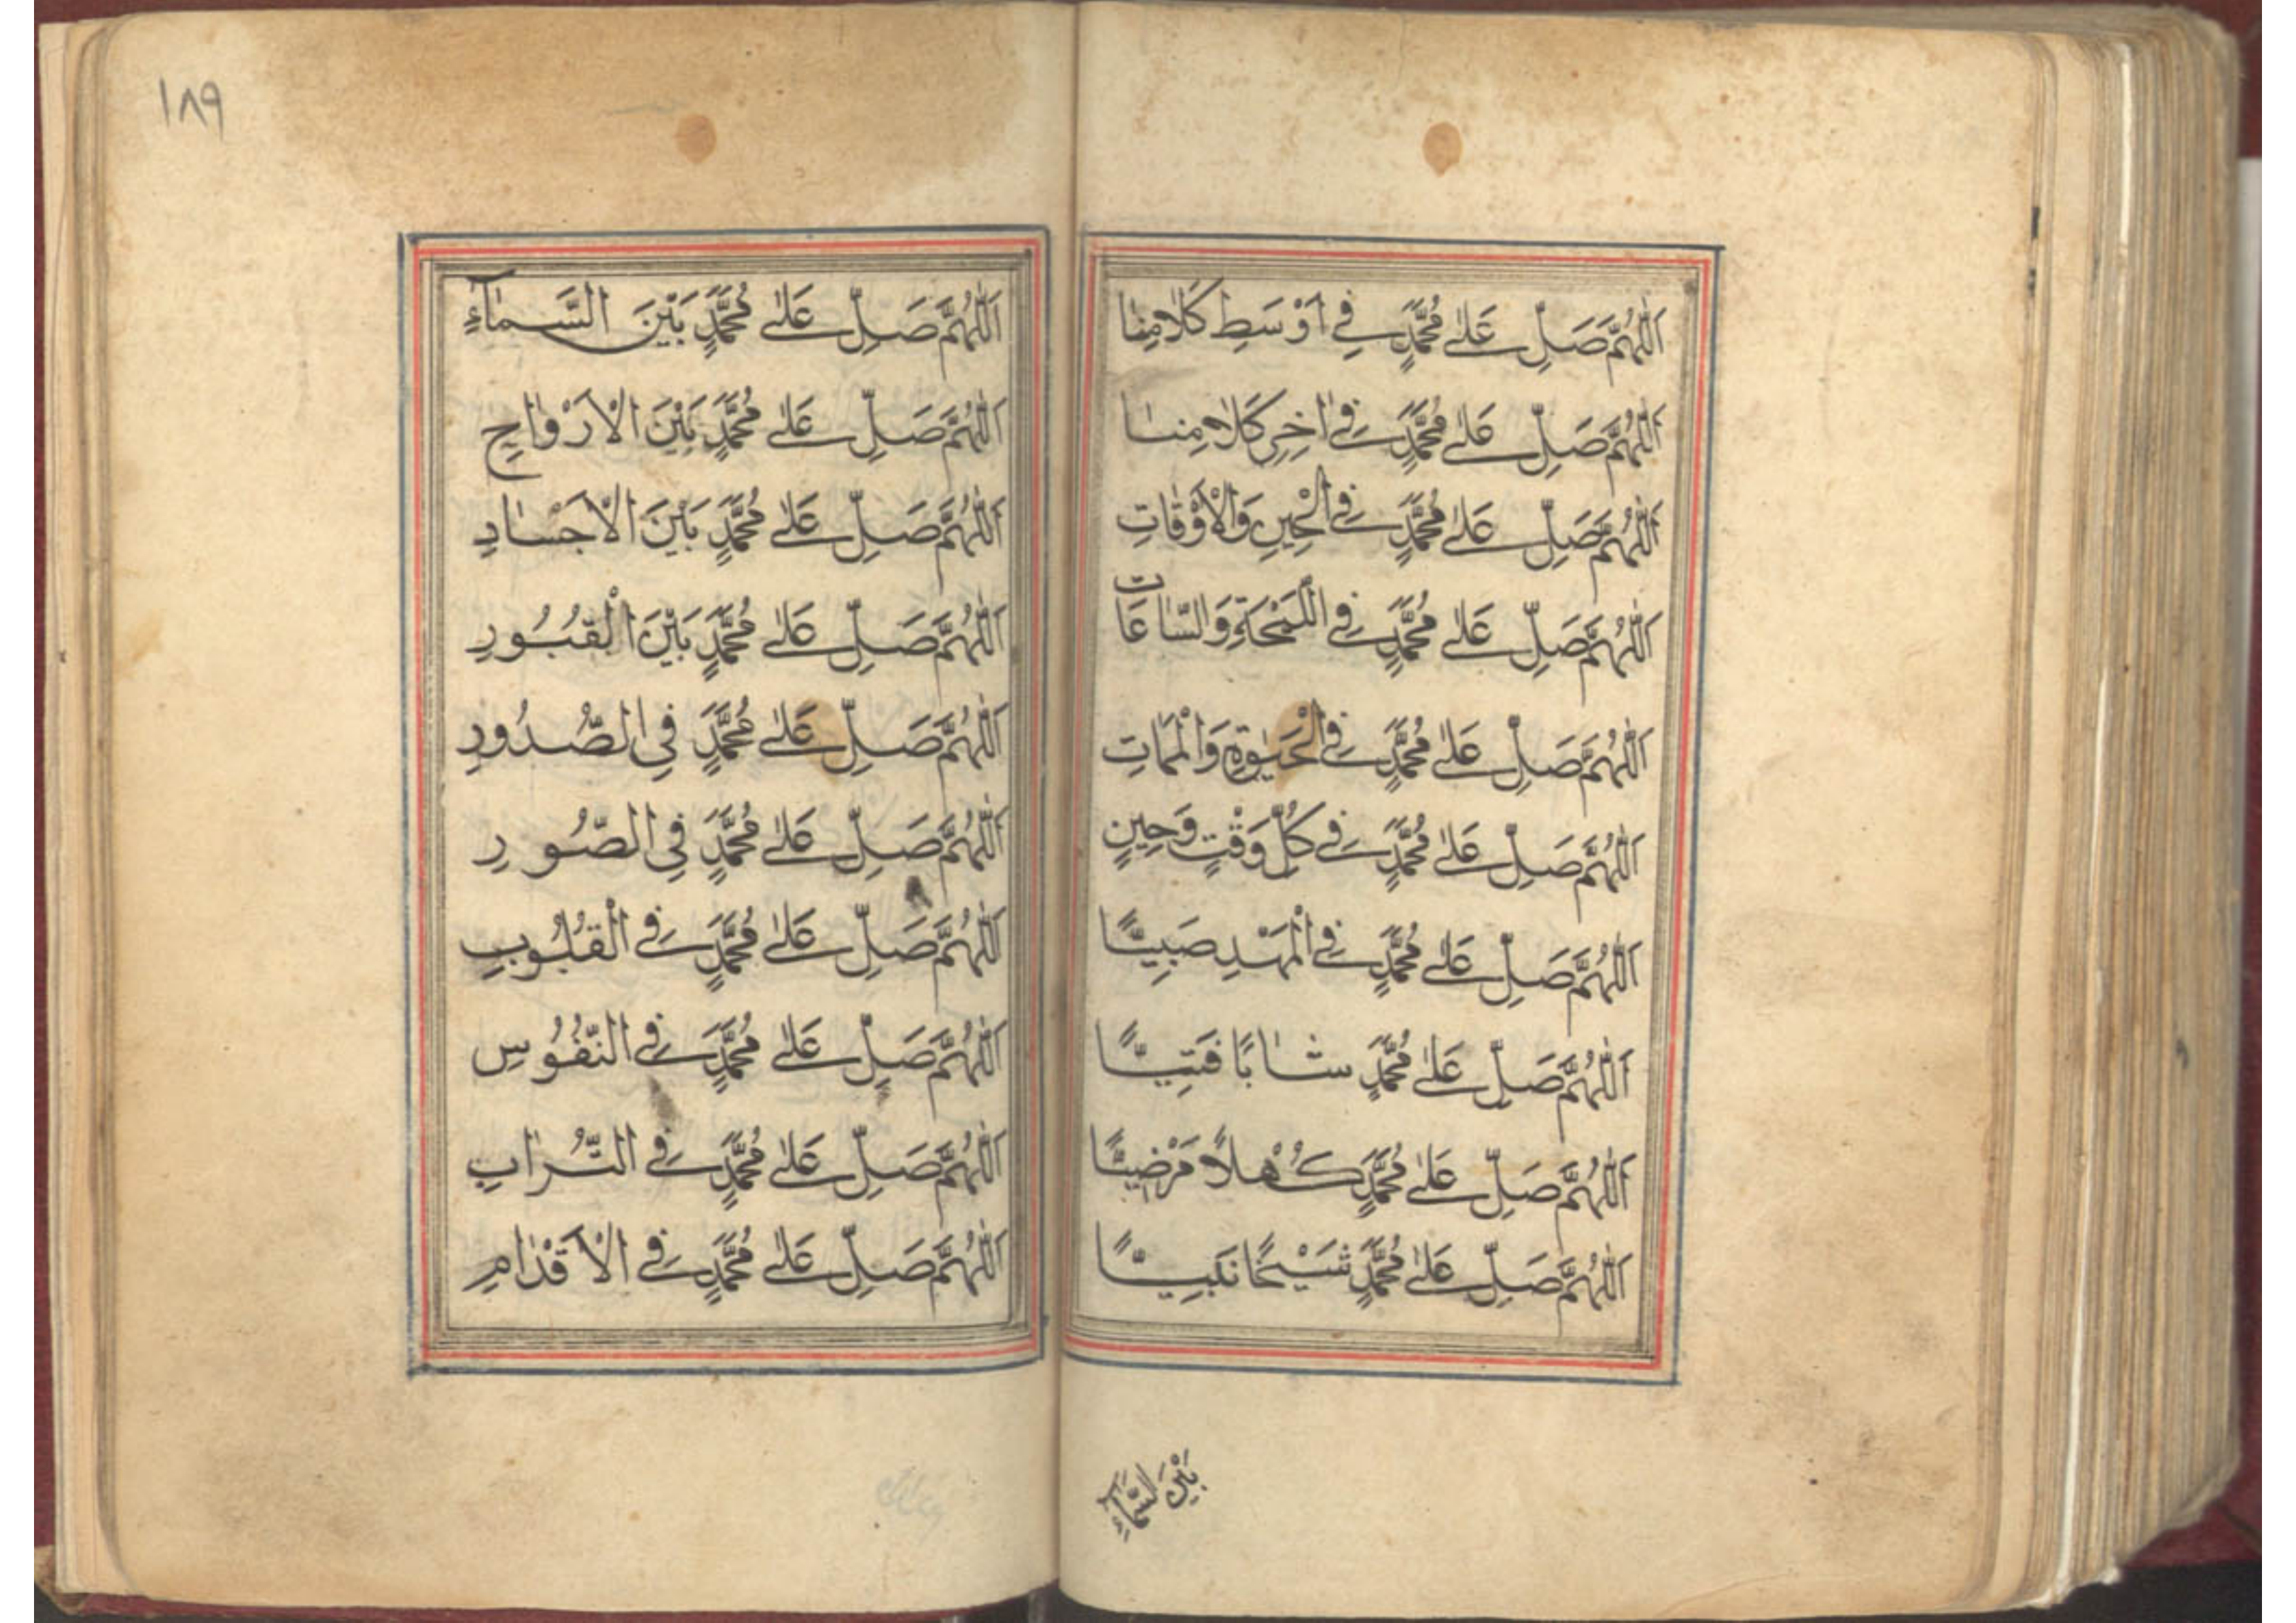 اَللّٰهُمَّ صَلِّ عَلٰى مُحَمَّدٍ فِي اَوْسَطِ كَلَامِنَا
اَللّٰهُمَّ صَلِّ عَلٰى مُحَمَّدٍ فِي اٰخِرِ كَلَامِنَا
اَللّٰهُمَّ صَلِّ عَلٰى مُحَمَّدٍ فِي الْحِينِ وَالْاَوْقَاتِ
اَللّٰهُمَّ صَلِّ عَلٰى مُحَمَّدٍ فِي اللَّمْحَةِ وَالسَّاعَاتِ
اَللّٰهُمَّ صَلِّ عَلٰى مُحَمَّدٍ فِي الْحَيٰوةِ وَالْمَمَاتِ
اَللّٰهُمَّ صَلِّ عَلٰى مُحَمَّدٍ فِي كُلِّ وَقْتٍ وَحِينٍ
اَللّٰهُمَّ صَلِّ عَلٰى مُحَمَّدٍ فِي الْمَهْدِ صَبِيًّا
اَللّٰهُمَّ صَلِّ عَلٰى مُحَمَّدٍ شَابًّا فَتِيًّا
اَللّٰهُمَّ صَلِّ عَلٰى مُحَمَّدٍ كُهْلًا مَرْضِيًّا
اَللّٰهُمَّ صَلِّ عَلٰى مُحَمَّدٍ شَيْخًا نَبِيًّا
بَيْنَ السَّمَآءِ
١٨٩
اَللّٰهُمَّ صَلِّ عَلٰى مُحَمَّدٍ بَيْنَ السَّمَآءِ
اَللّٰهُمَّ صَلِّ عَلٰى مُحَمَّدٍ بَيْنَ الْاَرْوَاحِ
اَللّٰهُمَّ صَلِّ عَلٰى مُحَمَّدٍ بَيْنَ الْاَجْسَادِ
اَللّٰهُمَّ صَلِّ عَلٰى مُحَمَّدٍ بَيْنَ الْقُبُورِ
اَللّٰهُمَّ صَلِّ عَلٰى مُحَمَّدٍ فِي الصُّدُورِ
اَللّٰهُمَّ صَلِّ عَلٰى مُحَمَّدٍ فِي الصُّورِ
اَللّٰهُمَّ صَلِّ عَلٰى مُحَمَّدٍ فِي الْقُلُوبِ
اَللّٰهُمَّ صَلِّ عَلٰى مُحَمَّدٍ فِي النُّفُوسِ
اَللّٰهُمَّ صَلِّ عَلٰى مُحَمَّدٍ فِي التُّرَابِ
اَللّٰهُمَّ صَلِّ عَلٰى مُحَمَّدٍ فِي الْاَقْدَامِ